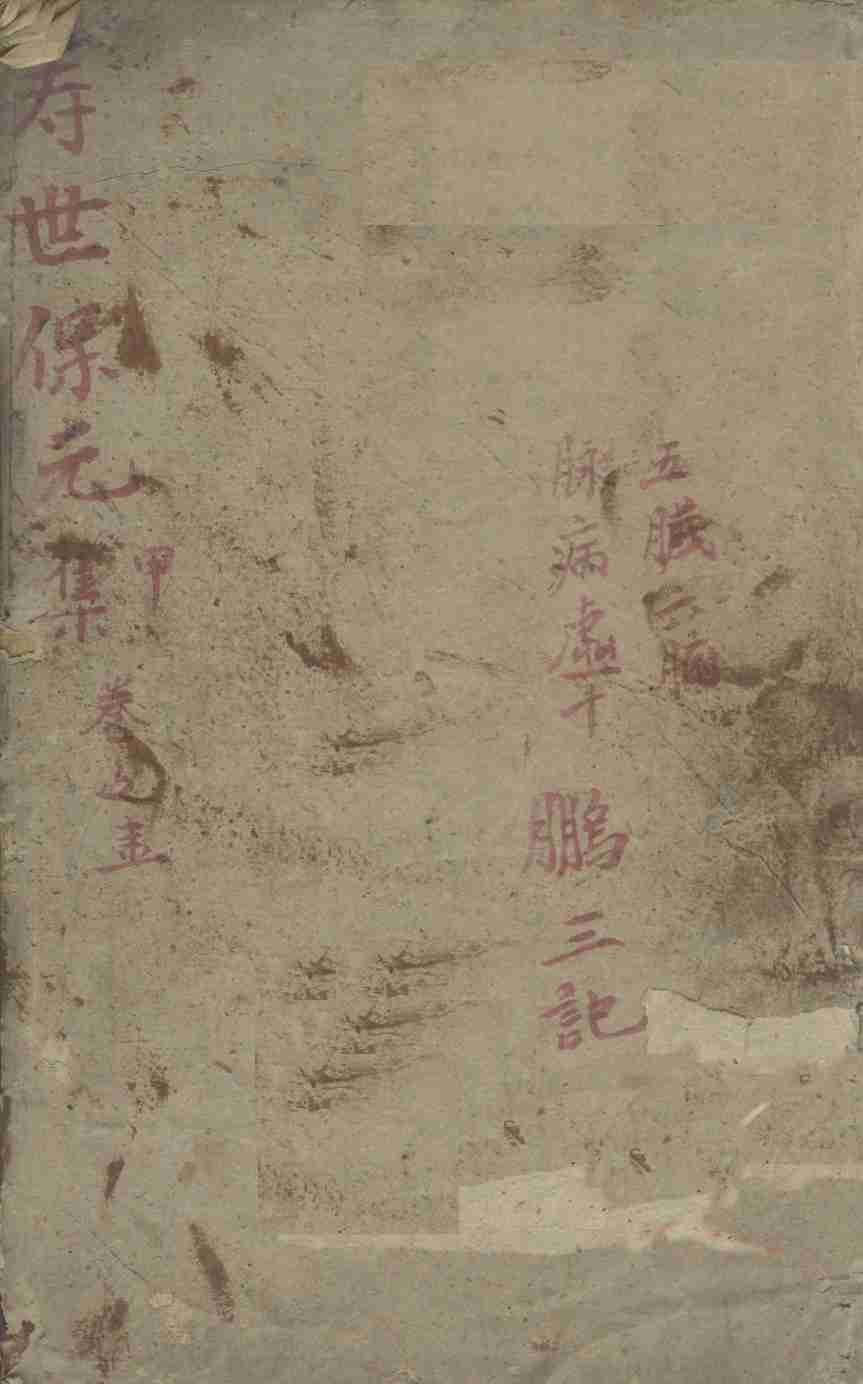 五臓六腑
脉病虚
鵬三記
寿世保元集
甲
卷之